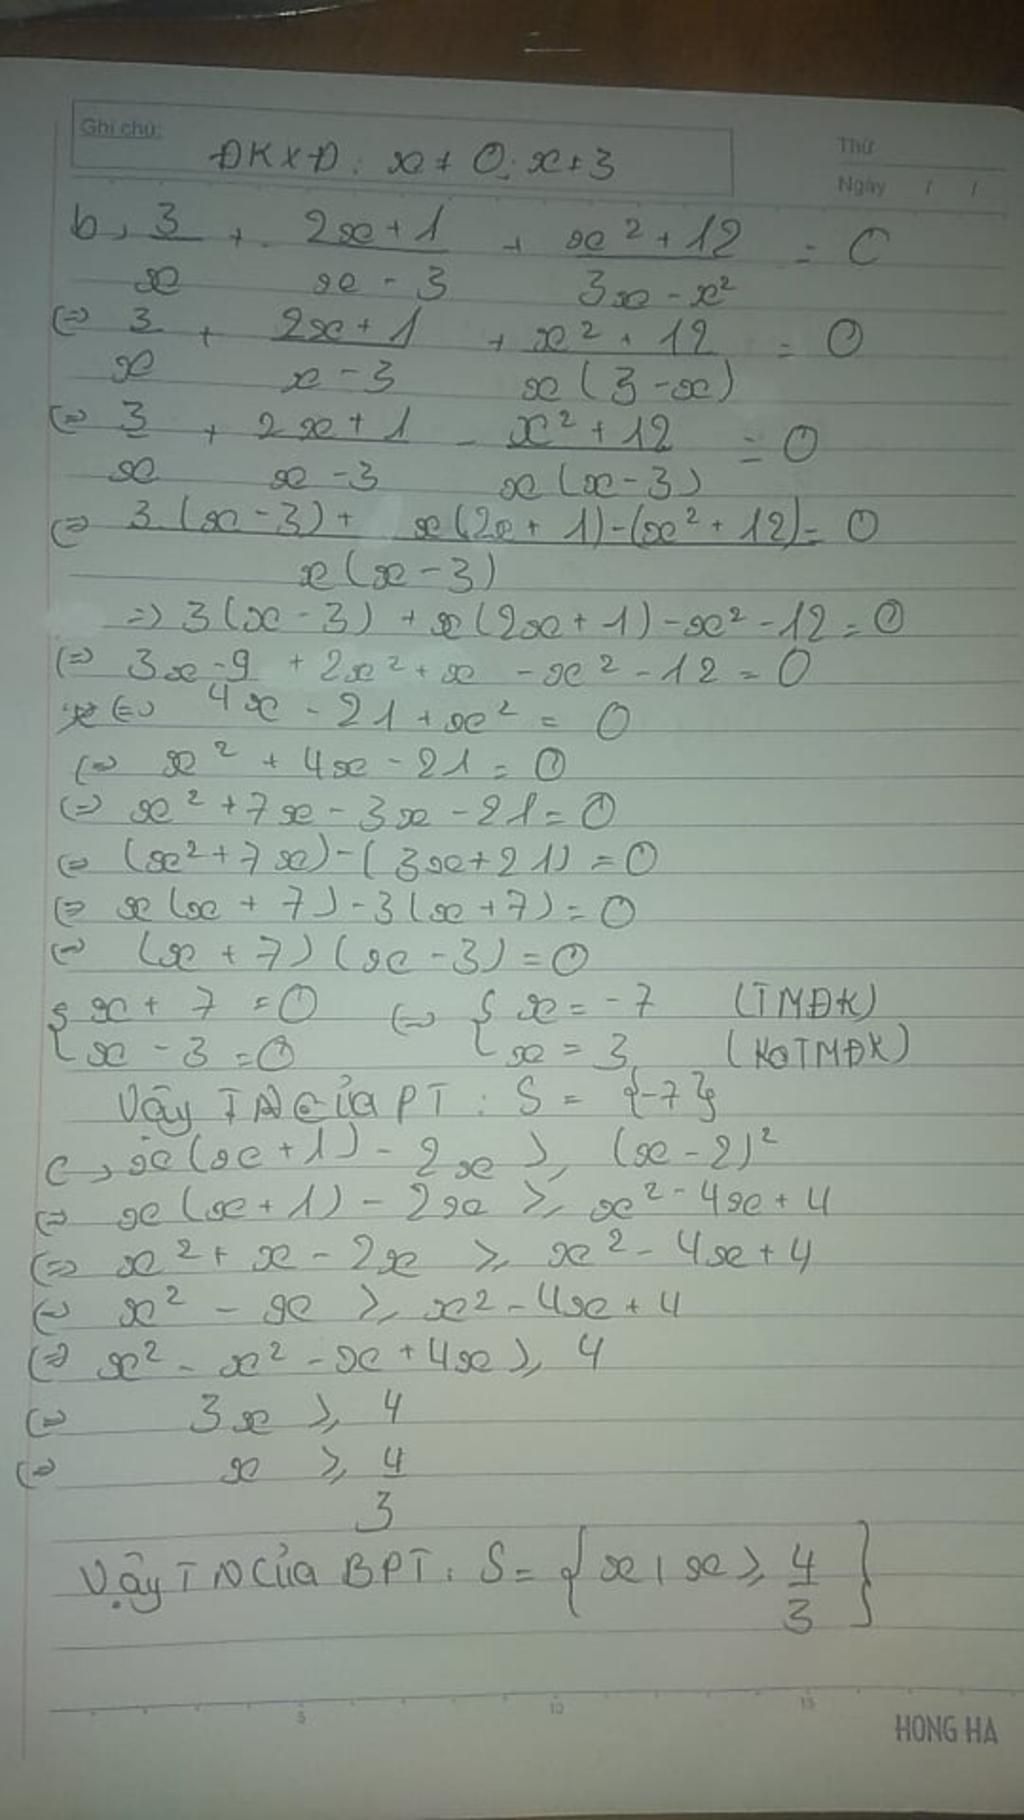 Ghi chú:
Thứ
Ngày / /
ĐKXĐ: x ≠ 0; x ≠ 3
b, 3/x + (2x+1)/(x-3) + (x²+12)/(3x-x²) = 0
(=) 3/x + (2x+1)/(x-3) + (x²+12)/(x(3-x)) = 0
(=) 3/x + (2x+1)/(x-3) - (x²+12)/(x(x-3)) = 0
(=) (3(x-3) + x(2x+1)-(x²+12))/(x(x-3)) = 0
=) 3(x-3) + x(2x+1) - x² - 12 = 0
(=) 3x-9 + 2x² + x - x² - 12 = 0
(=) 4x - 21 + x² = 0
(=) x² + 4x - 21 = 0
(=) x² + 7x - 3x - 21 = 0
(=) (x²+7x)-(3x+21) = 0
(=) x(x+7)-3(x+7) = 0
(=) (x+7)(x-3) = 0
{ x + 7 = 0 (=) { x = -7 (TMĐK)
{ x - 3 = 0 { x = 3 (KoTMĐK)
Vậy TN của PT: S = {-7}
c, x(x+1) - 2x ≥ (x-2)²
(=) x(x+1) - 2x ≥ x² - 4x + 4
(=) x² + x - 2x ≥ x² - 4x + 4
(=) x² - x ≥ x² - 4x + 4
(=) x² - x² - x + 4x ≥ 4
(=) 3x ≥ 4
(=) x ≥ 4/3
Vậy TN của BPT: S = {x | x ≥ 4/3}
5 10 15
HONG HA